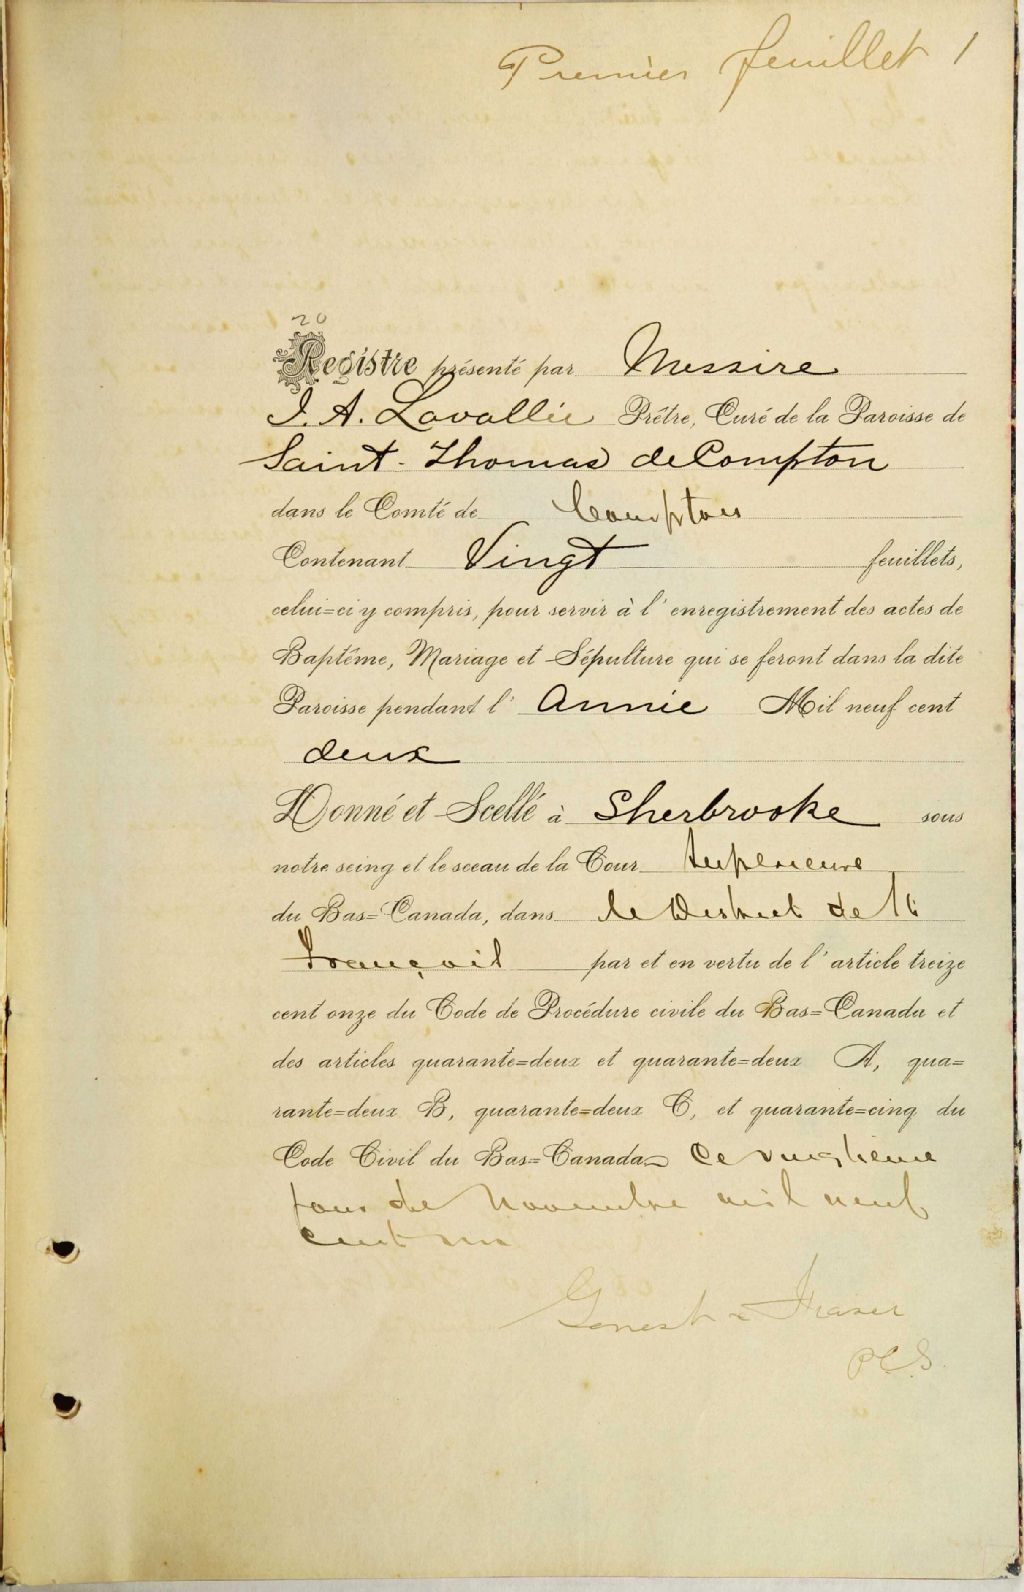 Premier feuillet 1
20
Registre présenté par Messire
J. A. Lavallée Prêtre, Curé de la Paroisse de
Saint-Thomas de Compton
dans le Comté de Compton
Contenant Vingt feuillets,
celui=ci y compris, pour servir à l'enregistrement des actes de
Baptême, Mariage et Sépulture qui se feront dans la dite
Paroisse pendant l'Année Mil neuf cent
deux
Donné et Scellé à Sherbrooke sous
notre seing et le sceau de la Cour Superieure
du Bas=Canada, dans le District de St
François par et en vertu de l'article treize
cent onze du Code de Procédure civile du Bas=Canada et
des articles quarante=deux et quarante=deux A, qua=
rante=deux B, quarante=deux C, et quarante=cinq du
Code Civil du Bas=Canada Ce vingtieme
jour de Novembre mil neuf
cent un
Genest & Fraser
P.C.S.